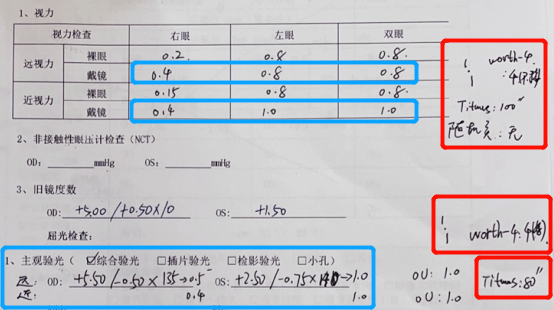 1、视力
视力检查 右眼 左眼 双眼
远视力 裸眼 0.2 0.8 0.8
戴镜 0.4 0.8 0.8
近视力 裸眼 0.15 0.8 0.8
戴镜 0.4 1.0 1.0
worth-4
Titmus:100"
随机点:无
2、非接触性眼压计检查(NCT)
OD: mmHg OS: mmHg
3、旧镜度数
OD: +5.00/+0.50×10 OS: +1.50
屈光检查:
worth-4:
1、主观验光( ☑综合验光 □插片验光 □检影验光 □小孔)
远: OD: +5.50/-0.50×135→0.5 OS: +2.50/-0.75×140→1.0 OU: 1.0
近: 0.4 1.0 OU: 1.0
Titmus:80"